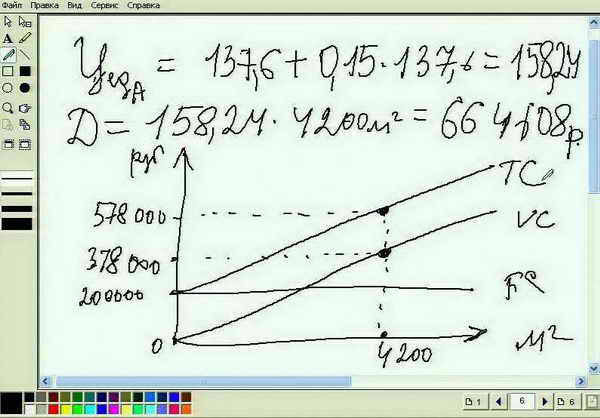 Файл Правка Вид Сервис Справка
Ц ед A = 137,6 + 0,15 · 137,6 = 158,24
Д = 158,24 · 4200 м² = 664608 р.
руб
TC
578 000
VC
378 000
200000
FC
0
4200
м²
1 6 6